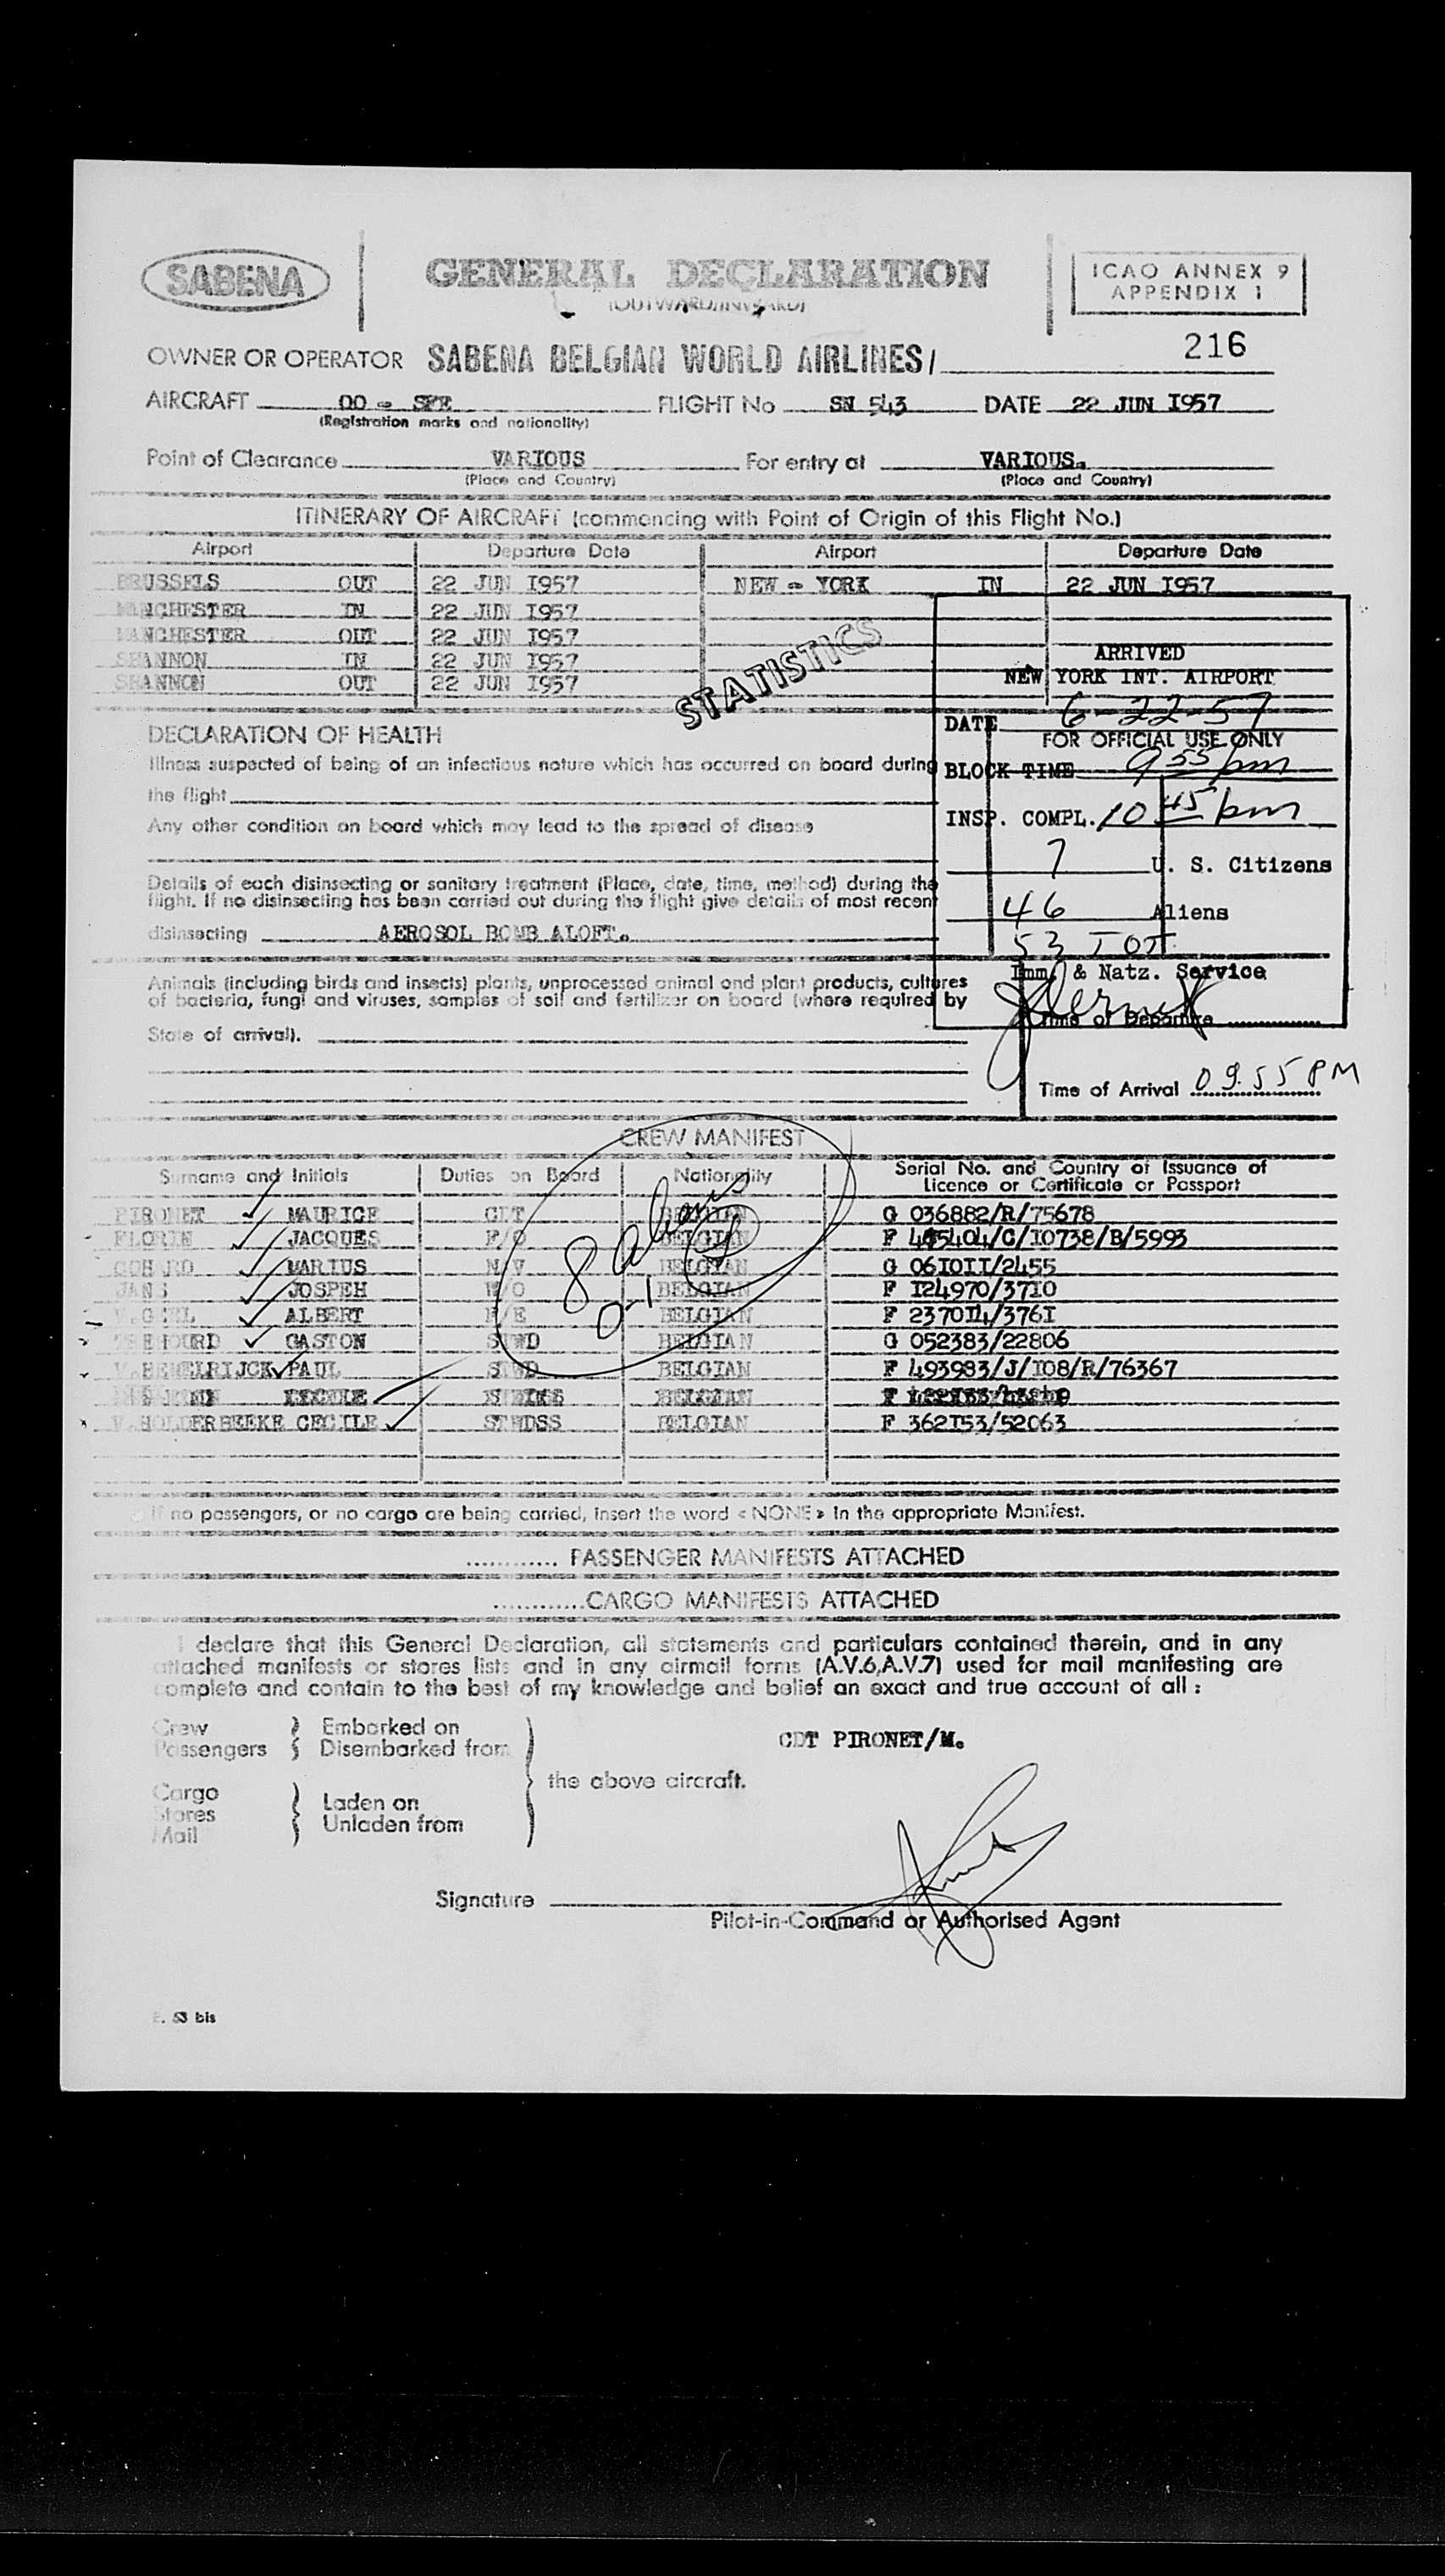 SABENA
GENERAL DECLARATION
(OUTWARD/INWARD)
ICAO ANNEX 9
APPENDIX 1
216
OWNER OR OPERATOR SABENA BELGIAN WORLD AIRLINES/
AIRCRAFT OO - SFE FLIGHT No SN 543 DATE 22 JUN I957
(Registration marks and nationality)
Point of Clearance VARIOUS For entry at VARIOUS.
(Place and Country) (Place and Country)
ITINERARY OF AIRCRAFT (commencing with Point of Origin of this Flight No.)
Airport Departure Date Airport Departure Date
BRUSSELS OUT 22 JUN I957 NEW - YORK IN 22 JUN I957
MANCHESTER IN 22 JUN I957
MANCHESTER OUT 22 JUN I957
SHANNON IN 22 JUN I957
SHANNON OUT 22 JUN I957
STATISTICS
ARRIVED
NEW YORK INT. AIRPORT
DATE 6-22-57
FOR OFFICIAL USE ONLY
BLOCK TIME 9 55 pm
INSP. COMPL. 10 45 pm
7 U. S. Citizens
46 Aliens
53 TOT
Imm. & Natz. Service
Time of Departure
Time of Arrival 09.55 PM
DECLARATION OF HEALTH
Illness suspected of being of an infectious nature which has occurred on board during
the flight
Any other condition on board which may lead to the spread of disease
Details of each disinsecting or sanitary treatment (Place, date, time, method) during the
flight. If no disinsecting has been carried out during the flight give details of most recent
disinsecting AEROSOL BOMB ALOFT.
Animals (including birds and insects) plants, unprocessed animal and plant products, cultures
of bacteria, fungi and viruses, samples of soil and fertilizer on board (where required by
State of arrival).
CREW MANIFEST
Surname and Initials Duties on Board Nationality Serial No. and Country of Issuance of
Licence or Certificate or Passport
PIRONET MAURICE CDT BELGIAN G 036882/R/75678
FLORIN JACQUES P/O BELGIAN F 485404/C/I0738/B/5993
MARIUS N/V BELGIAN G 06I0II/2455
JANS JOSPEH BELGIAN F I24970/37I0
ALBERT F/E BELGIAN F 2370I4/376I
GASTON STWD BELGIAN G 052383/22806
V.HEMELRIJCK PAUL STWD BELGIAN F 493983/J/I08/R/76367
BELGIAN
V.HOLDERBEEKE CECILE STWDSS BELGIAN F 362I53/52063
8 aliens
0-1
If no passengers, or no cargo are being carried, insert the word « NONE » in the appropriate Manifest.
............ PASSENGER MANIFESTS ATTACHED
............CARGO MANIFESTS ATTACHED
I declare that this General Declaration, all statements and particulars contained therein, and in any
attached manifests or stores lists and in any airmail forms (A.V.6,A.V.7) used for mail manifesting are
complete and contain to the best of my knowledge and belief an exact and true account of all :
Crew Embarked on
Passengers Disembarked from
CDT PIRONET/M.
the above aircraft.
Cargo
Stores
Mail
Laden on
Unladen from
Signature
Pilot-in-Command or Authorised Agent
53 bis